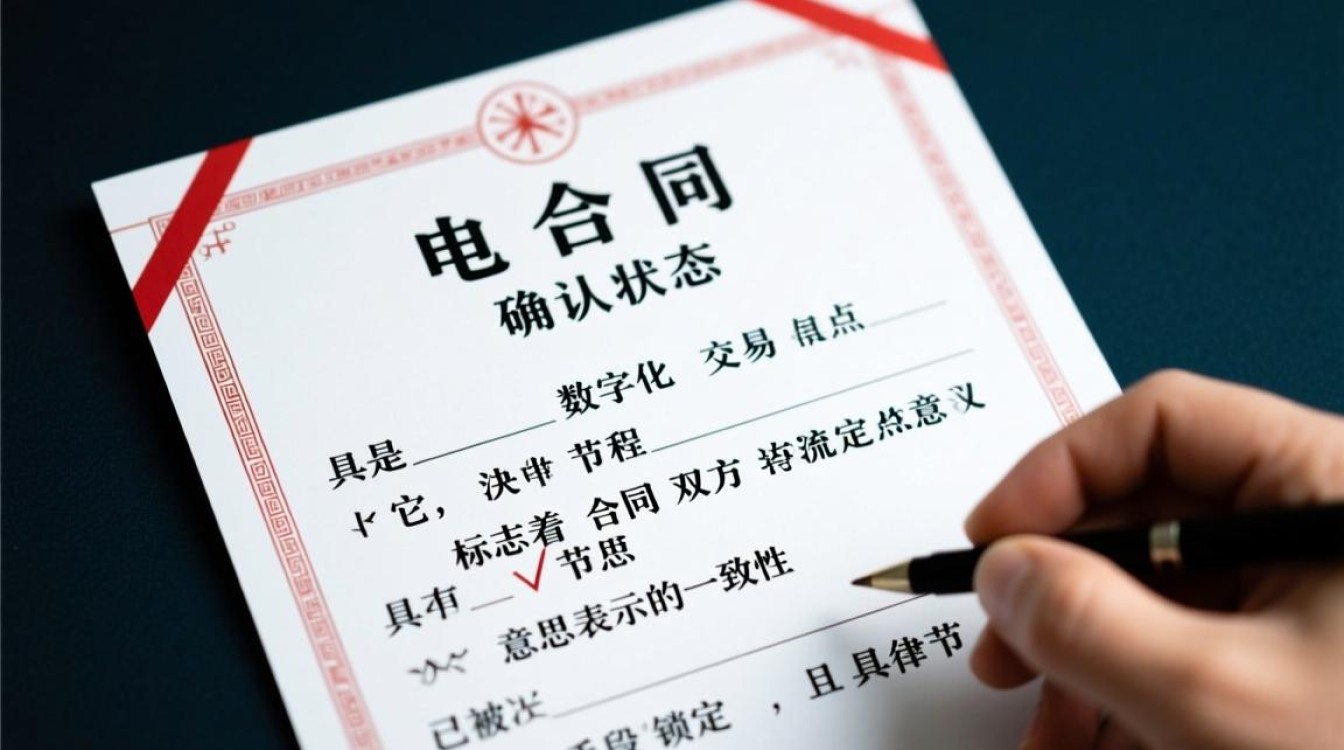 电合同
确认状态
数字化 交易 点
具是
它， 节程
标志着 合同 双方 流定点意义
具有 节思
意思表示的一致性
已被
手段 锁定 ，且具律节